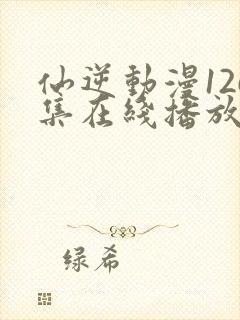 仙逆動漫12
集在綫播放
绿希